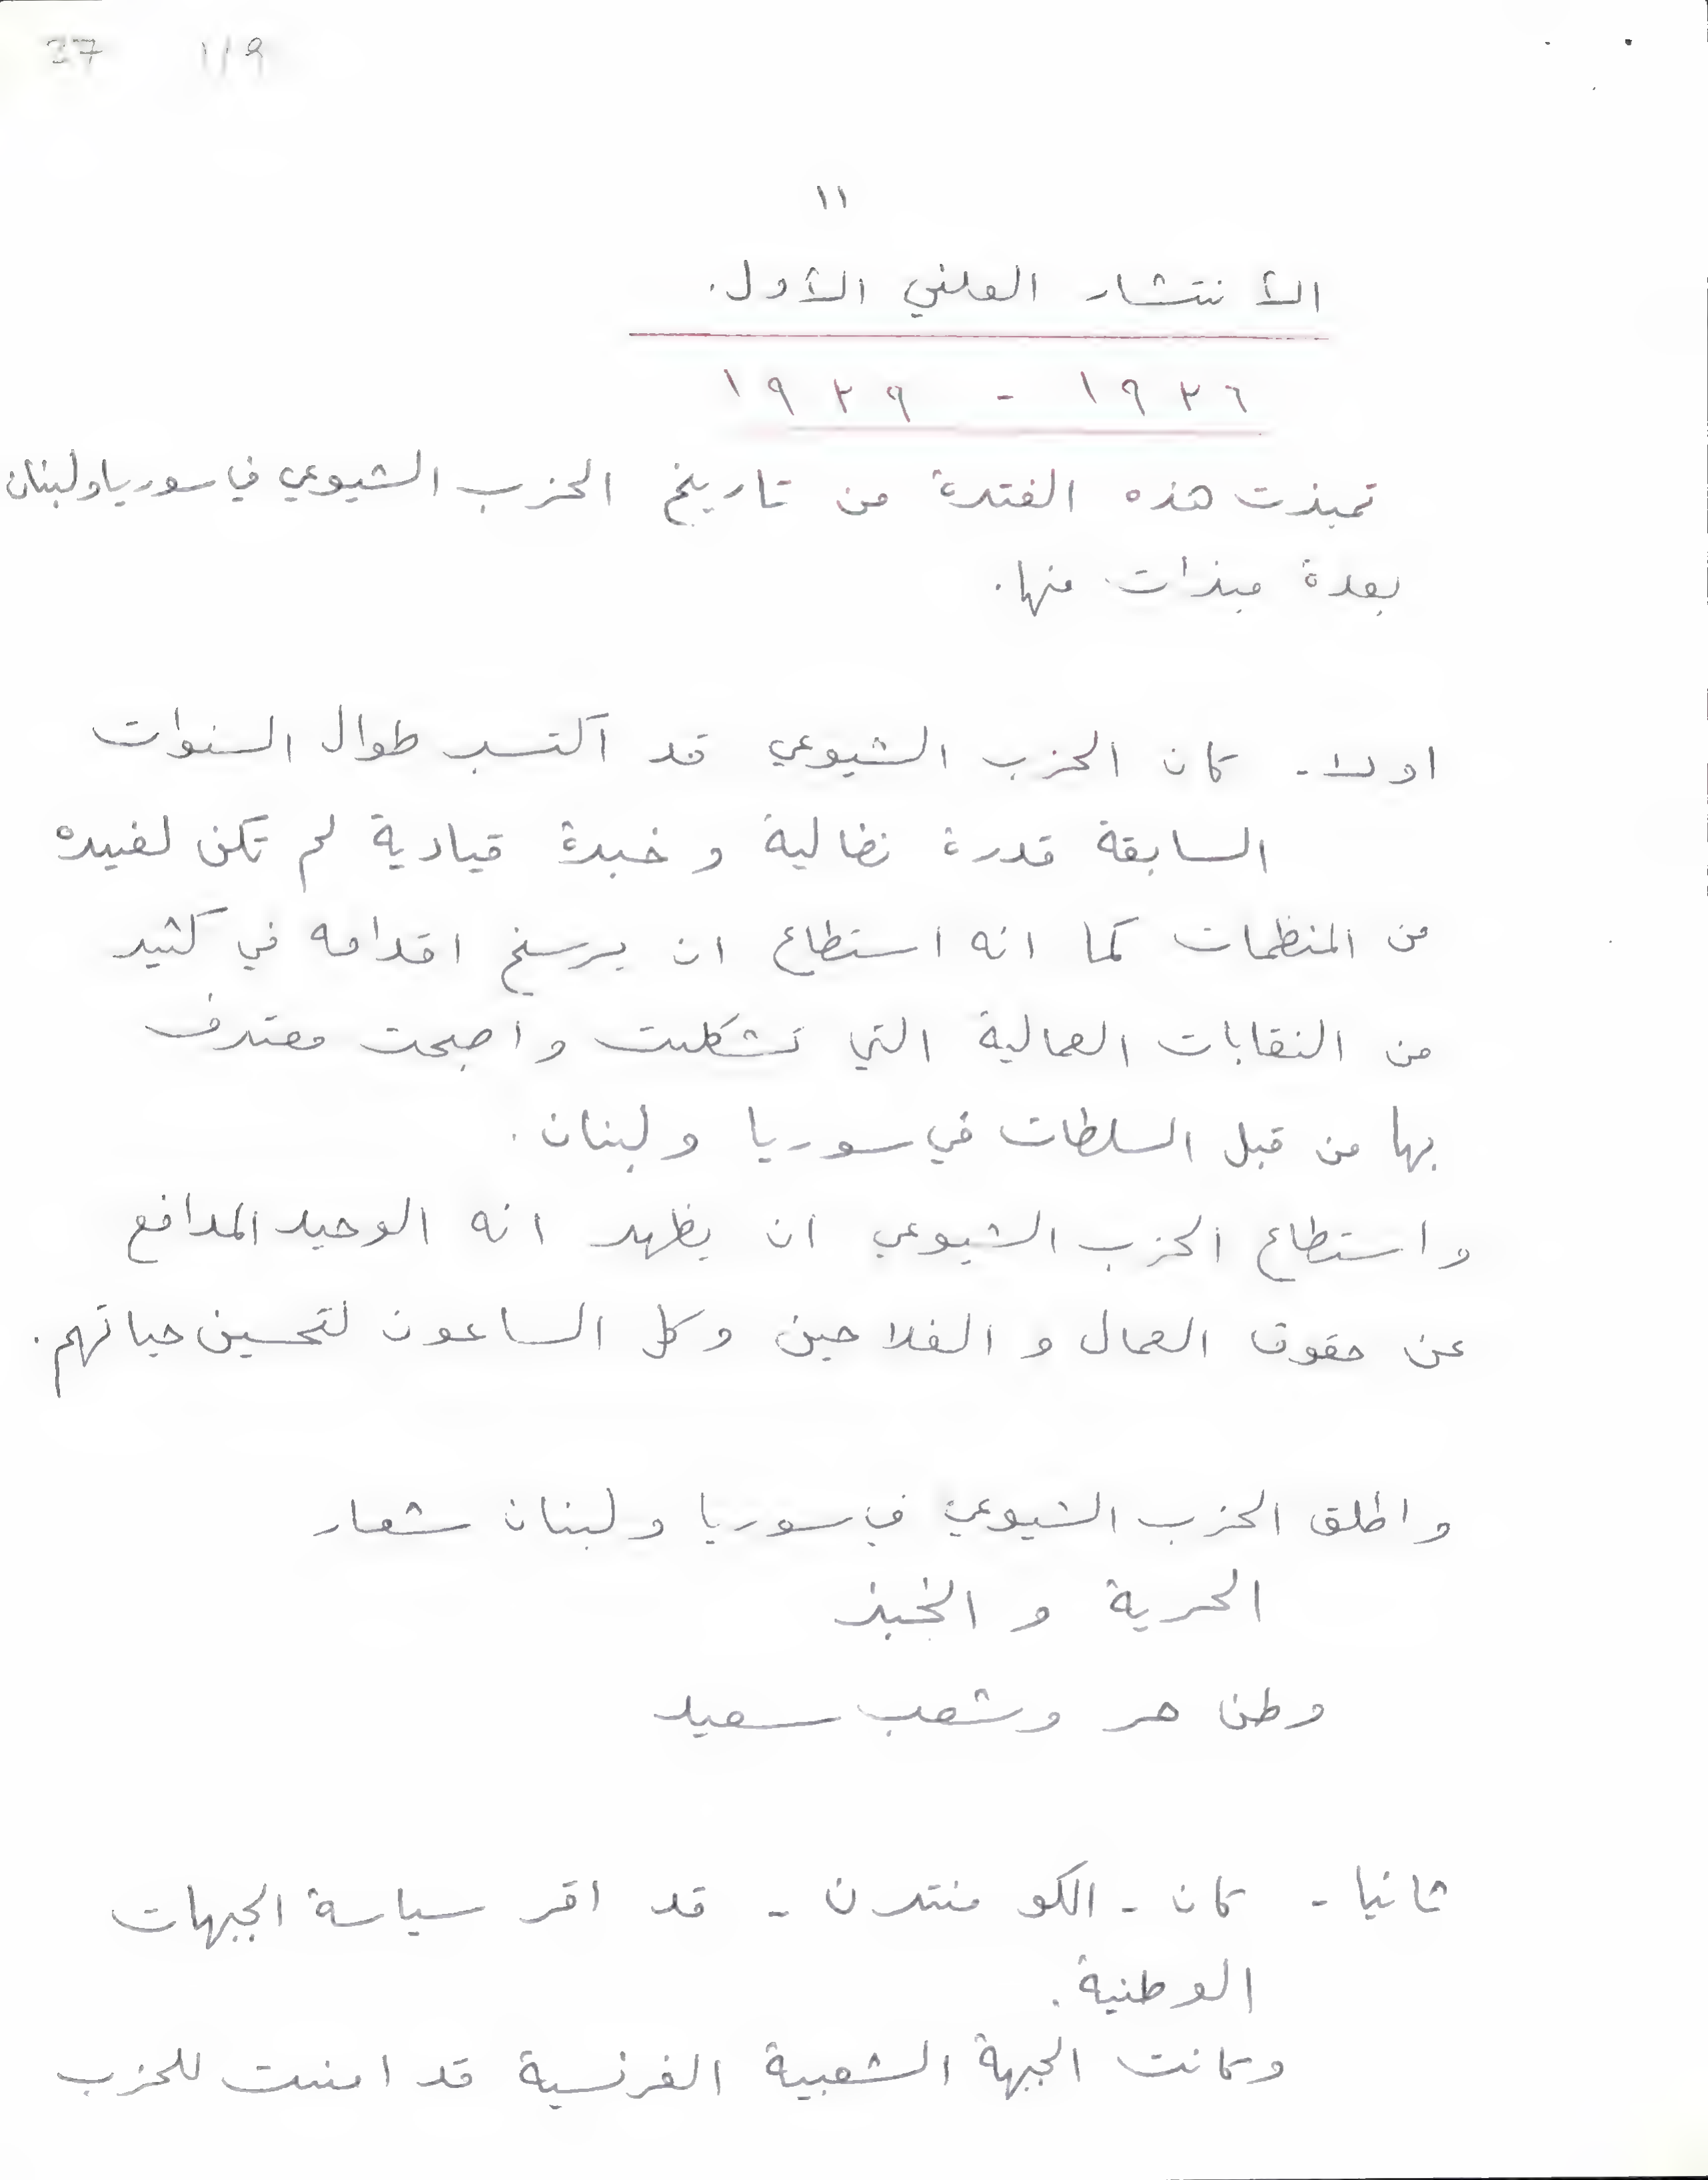 37 119
١١
الأنتشار العلني الأول.
١٩٣٦ - ١٩٣٩
تميزت هذه الفترة من تاريخ الحزب الشيوعي في سوريا ولبنان
بعدة ميزات منها.
اولا - كان الحزب الشيوعي قد اكتسب طوال السنوات
السابقة قدرة نضالية و خبرة قيادية لم تكن لغيره
من المنظمات كما انه استطاع ان يرسخ اقدامه في كثير
من النقابات العمالية التي تشكلت واصبحت معترف
بها من قبل السلطات في سوريا ولبنان.
واستطاع الحزب الشيوعي ان يظهر انه الوحيد المدافع
عن حقوق العمال و الفلاحين وكل الساعون لتحسين حياتهم.
واطلق الحزب الشيوعي في سوريا ولبنان شعار
الحرية و الخبز
وطن حر وشعب سعيد
ثانيا - كان - الكومنترن - قد اقر سياسة الجبهات
الوطنية.
وكانت الجبهة الشعبية الفرنسية قد امنت للحزب